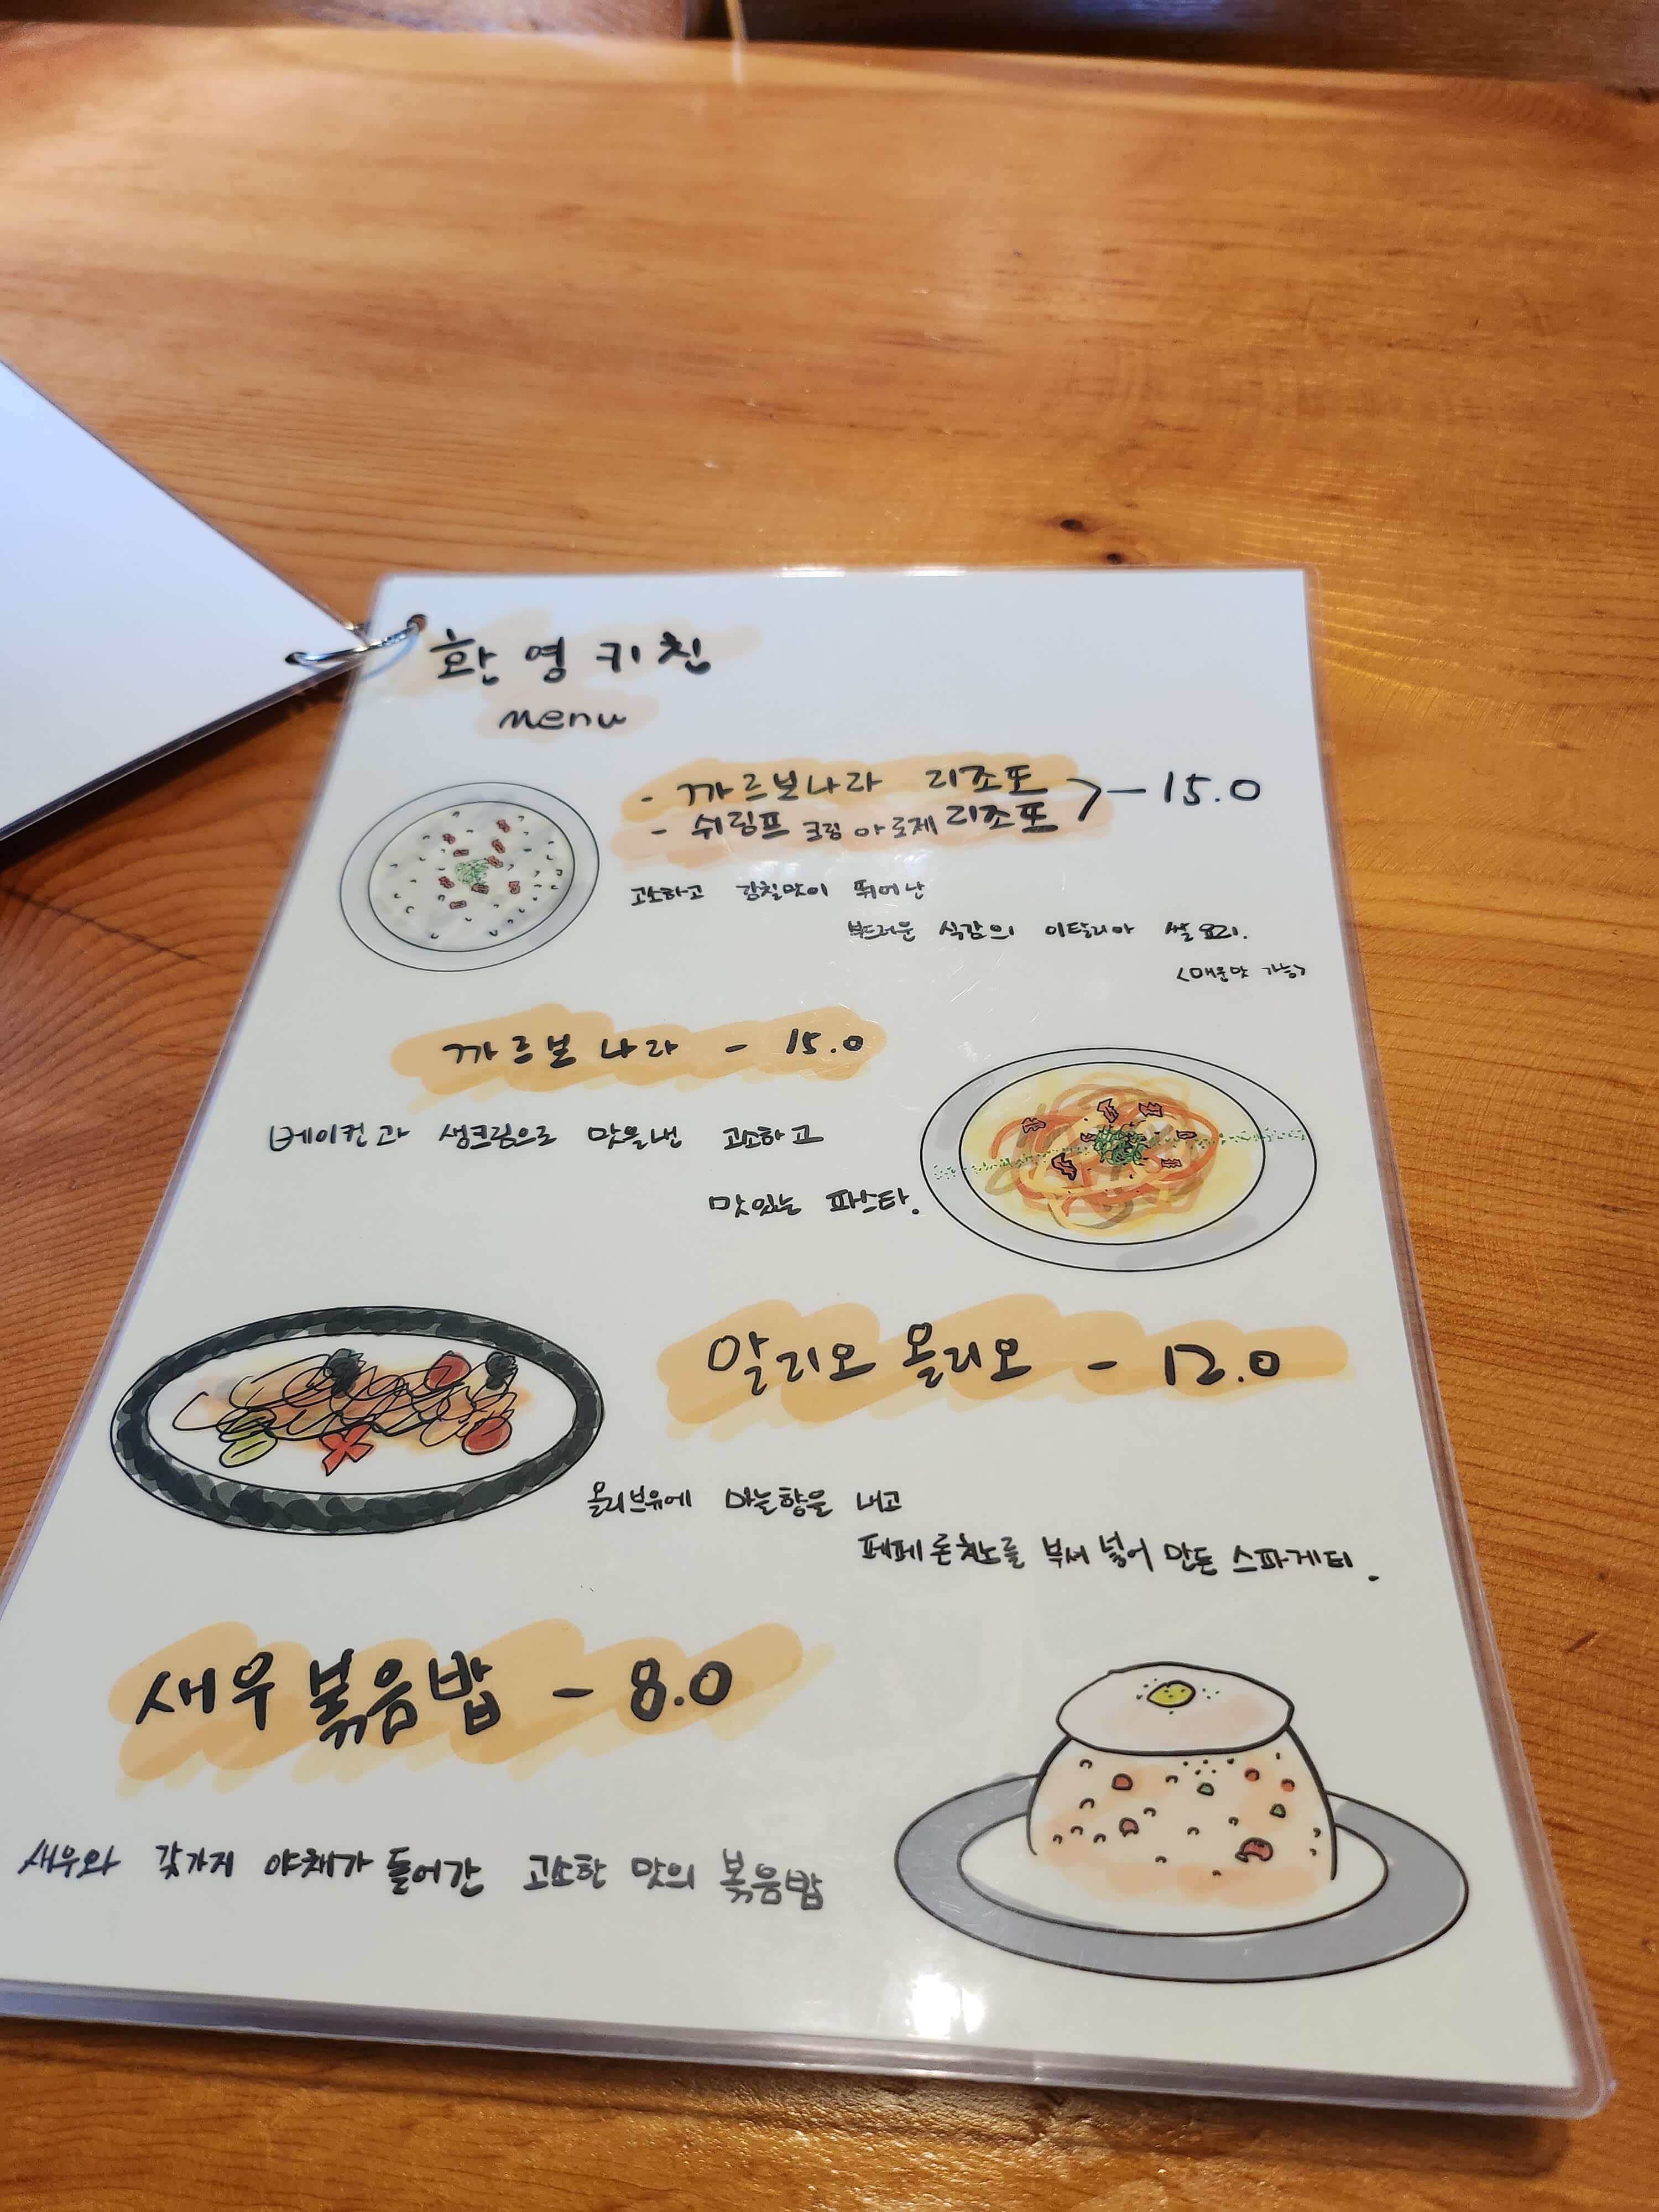 환영키친
menu
- 까르보나라 리조또
- 쉬림프 크림 아 로제 리조또
- 15.0
고소하고 감칠맛이 뛰어난
부드러운 식감의 이탈리아 쌀 요리.
<매운맛 가능>
까르보나라 - 15.0
베이컨과 생크림으로 맛을낸 고소하고
맛있는 파스타.
알리오 올리오 - 12.0
올리브유에 마늘향을 내고
페페론치노를 부셔 넣어 만든 스파게티.
새우볶음밥 - 8.0
새우와 갖가지 야채가 들어간 고소한 맛의 볶음밥